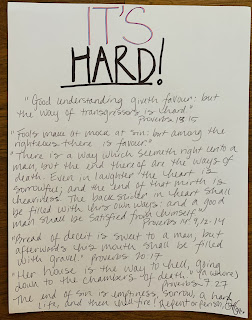 IT'S
HARD!
"Good understanding giveth favour: but
the way of transgressors is hard."
Proverbs 13:15
"Fools make a mock at sin: but among the
righteous there is favour."
"There is a way which seemeth right unto a
man, but the end thereof are the ways of
death. Even in laughter the heart is
sorrowful; and the end of that mirth is
heaviness. The backslider in heart shall
be filled with his own ways: and a good
man shall be satisfied from himself."
Proverbs 14:9, 12-14
"Bread of deceit is sweet to a man, but
afterwards his mouth shall be filled
with gravel." Proverbs 20:17
"Her house is the way to hell, going
down to the chambers of death." (a whore)
Proverbs 7:27
The end of sin is emptiness, sorrow, a hard
life, and then hell fire! Repent or perish,